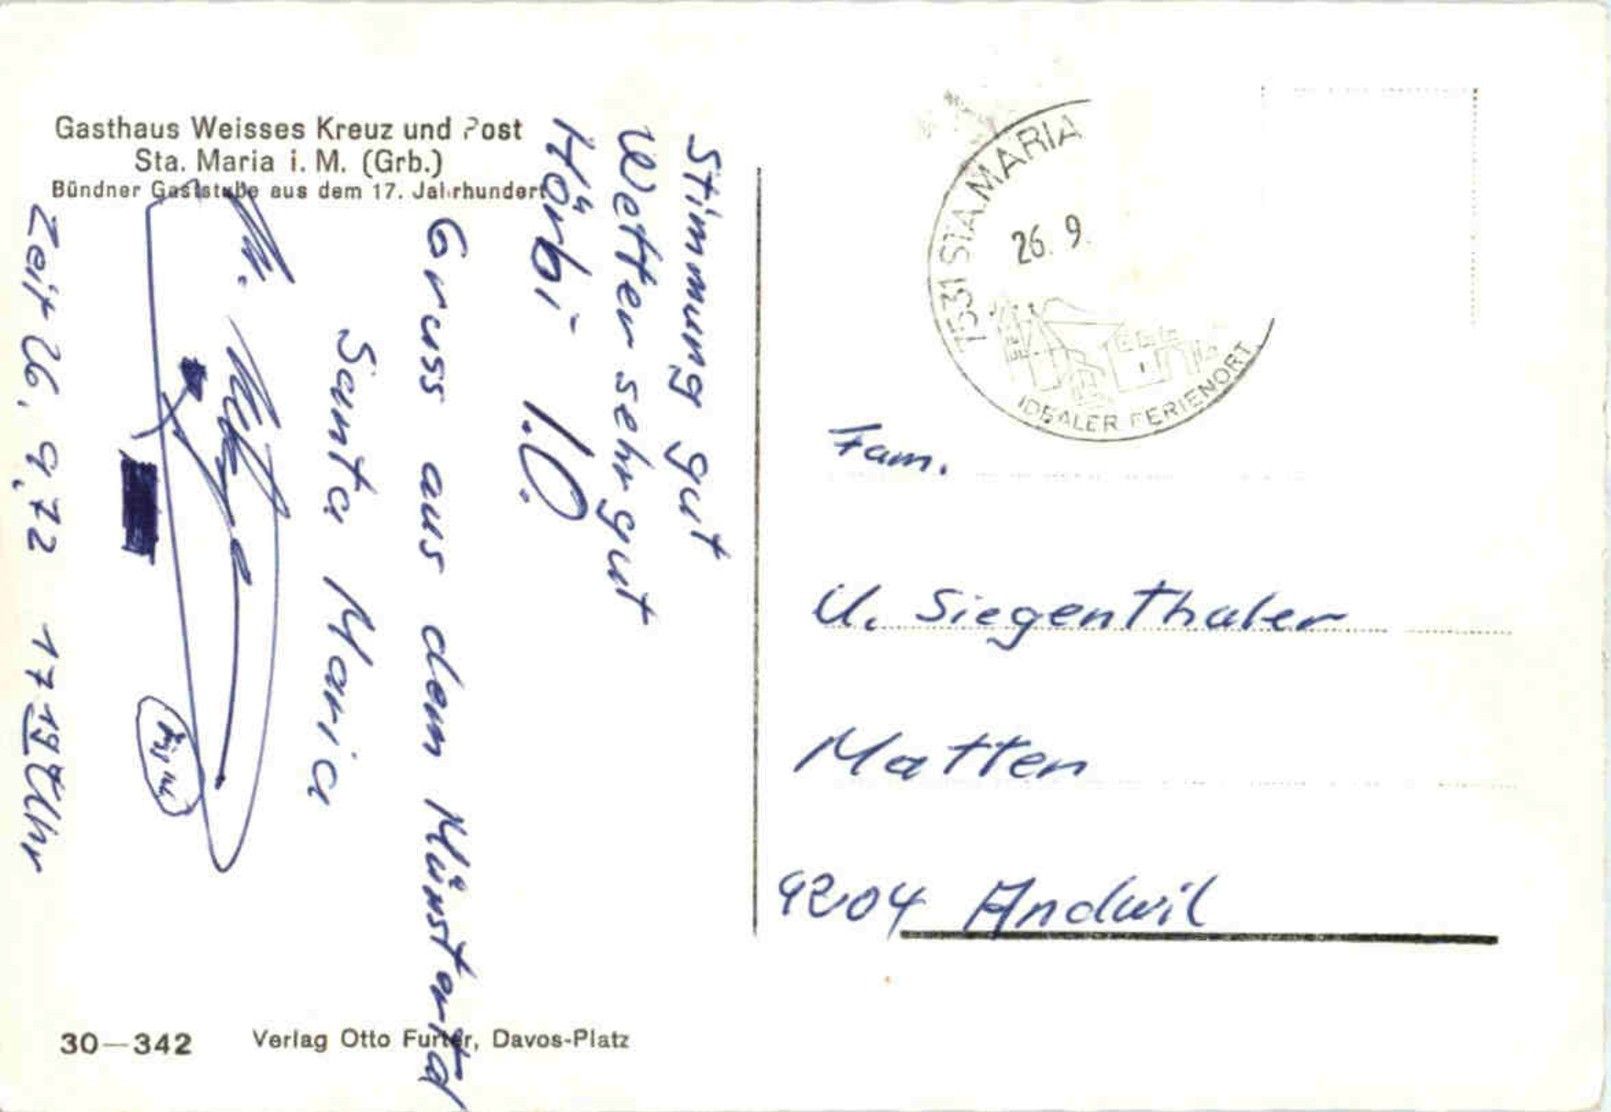 Gasthaus Weisses Kreuz und Post
Sta. Maria i. M. (Grb.)
Bündner Gaststube aus dem 17. Jahrhundert
Stimmung gut
Wetter sehr gut
Hörbi I.O.
Gruss aus dem Münstertal
Santa Maria
Zeit 26. 9. 72 17 19 Uhr
7531 STA. MARIA
26. 9.
IDEALER FERIENORT
Fam.
U. Siegenthaler
Matten
9204 Andwil
30—342 Verlag Otto Furter, Davos-Platz